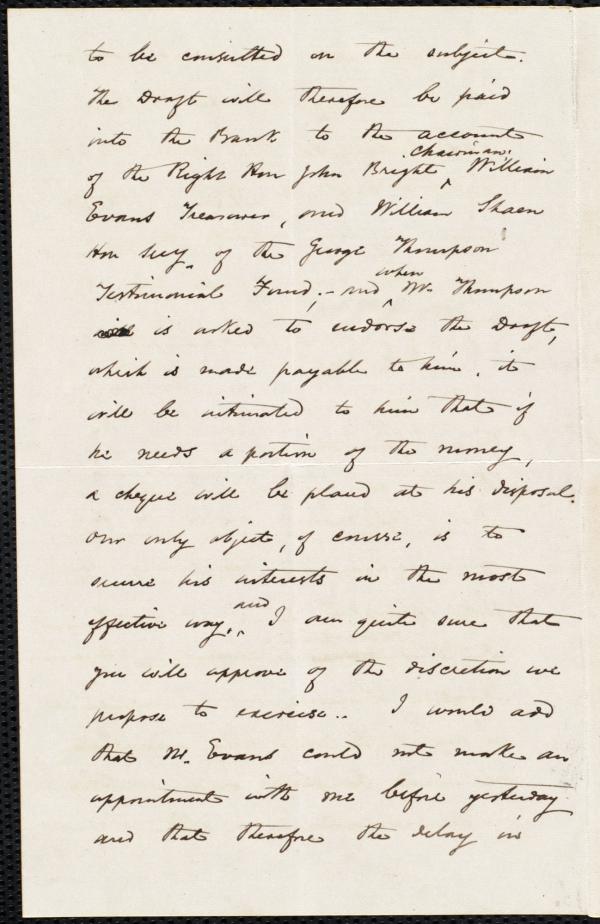 to be consulted on the subject.
The Draft will therefore be paid
into the Bank to the account
of the Right Hon John Bright, Chairman, William
Evans Treasurer, and William Shaen
Hon Secy, of the George Thompson
Testimonial Fund; - and when Mr. Thompson
is asked to endorse the Draft,
which is made payable to him, it
will be intimated to him that if
he needs a portion of the money,
a cheque will be placed at his disposal.
Our only object, of course, is to
secure his interests in the most
effective way, and I am quite sure that
you will approve of the discretion we
propose to exercise.. I would add
that Mr. Evans could not make an
appointment with me before yesterday
and that therefore the delay in